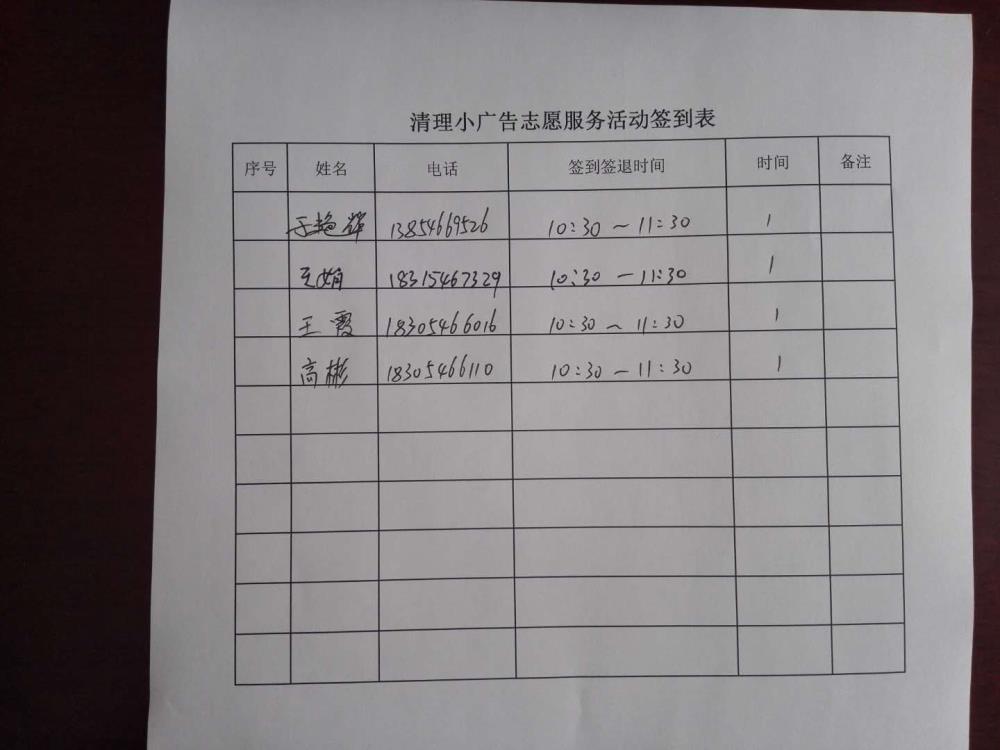 清理小广告志愿服务活动签到表
序号 姓名 电话 签到签退时间 时间 备注
于艳辉 13854669526 10:30～11:30 1
王娟 18315467329 10:30—11:30 1
王霞 18305466016 10:30～11:30 1
高彬 18305466110 10:30—11:30 1